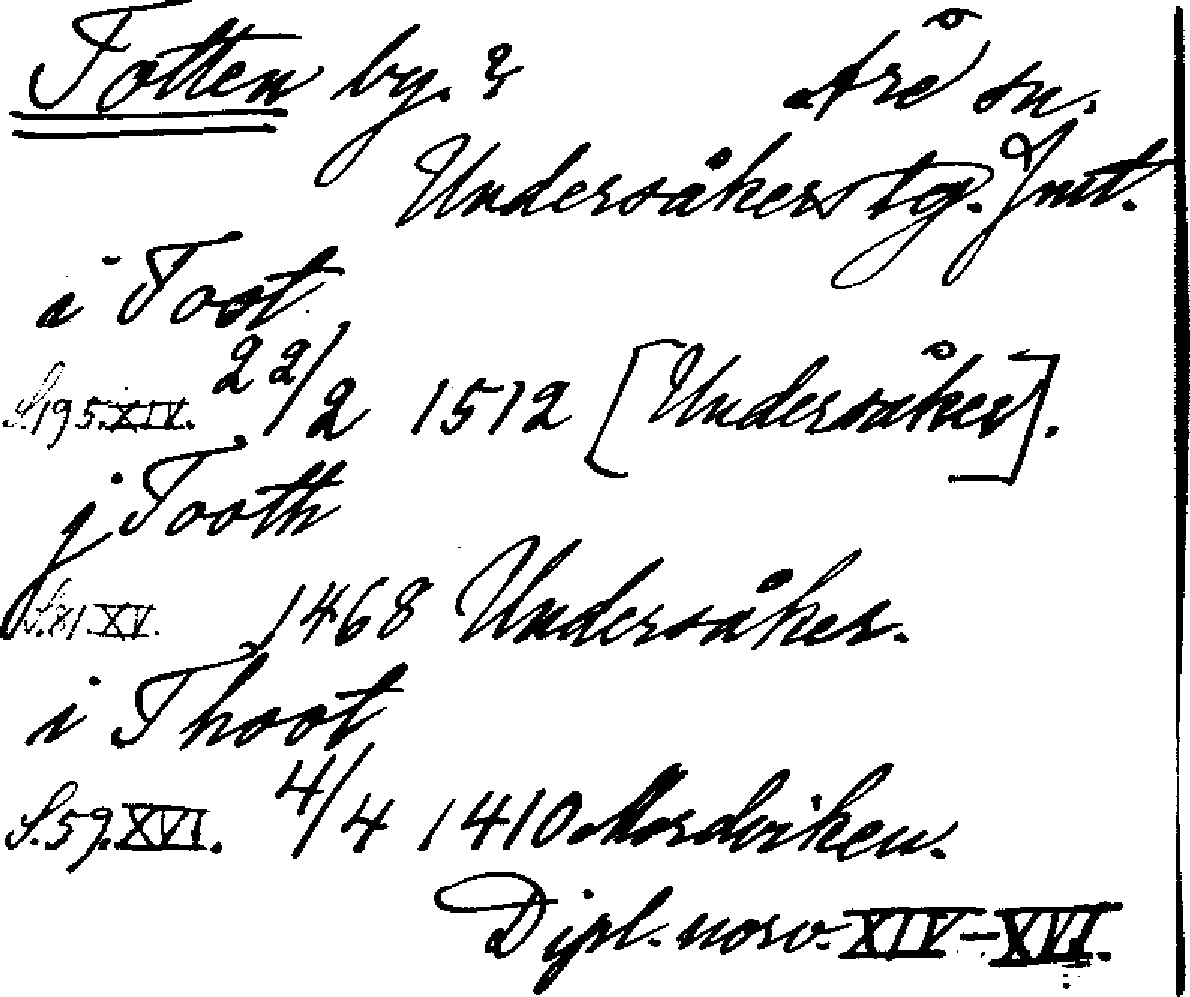 Totten by.? Åre sn.
Undersåkers tg. Jmt.
i Toot
S.195.XIV. 22/2 1512 [Undersåker].
j Tooth
S.81.XV. 1468 Undersåker.
i Thoot
S.59.XVI. 4/4 1410 Mordviken.
Dipl. norv. XIV-XVI.